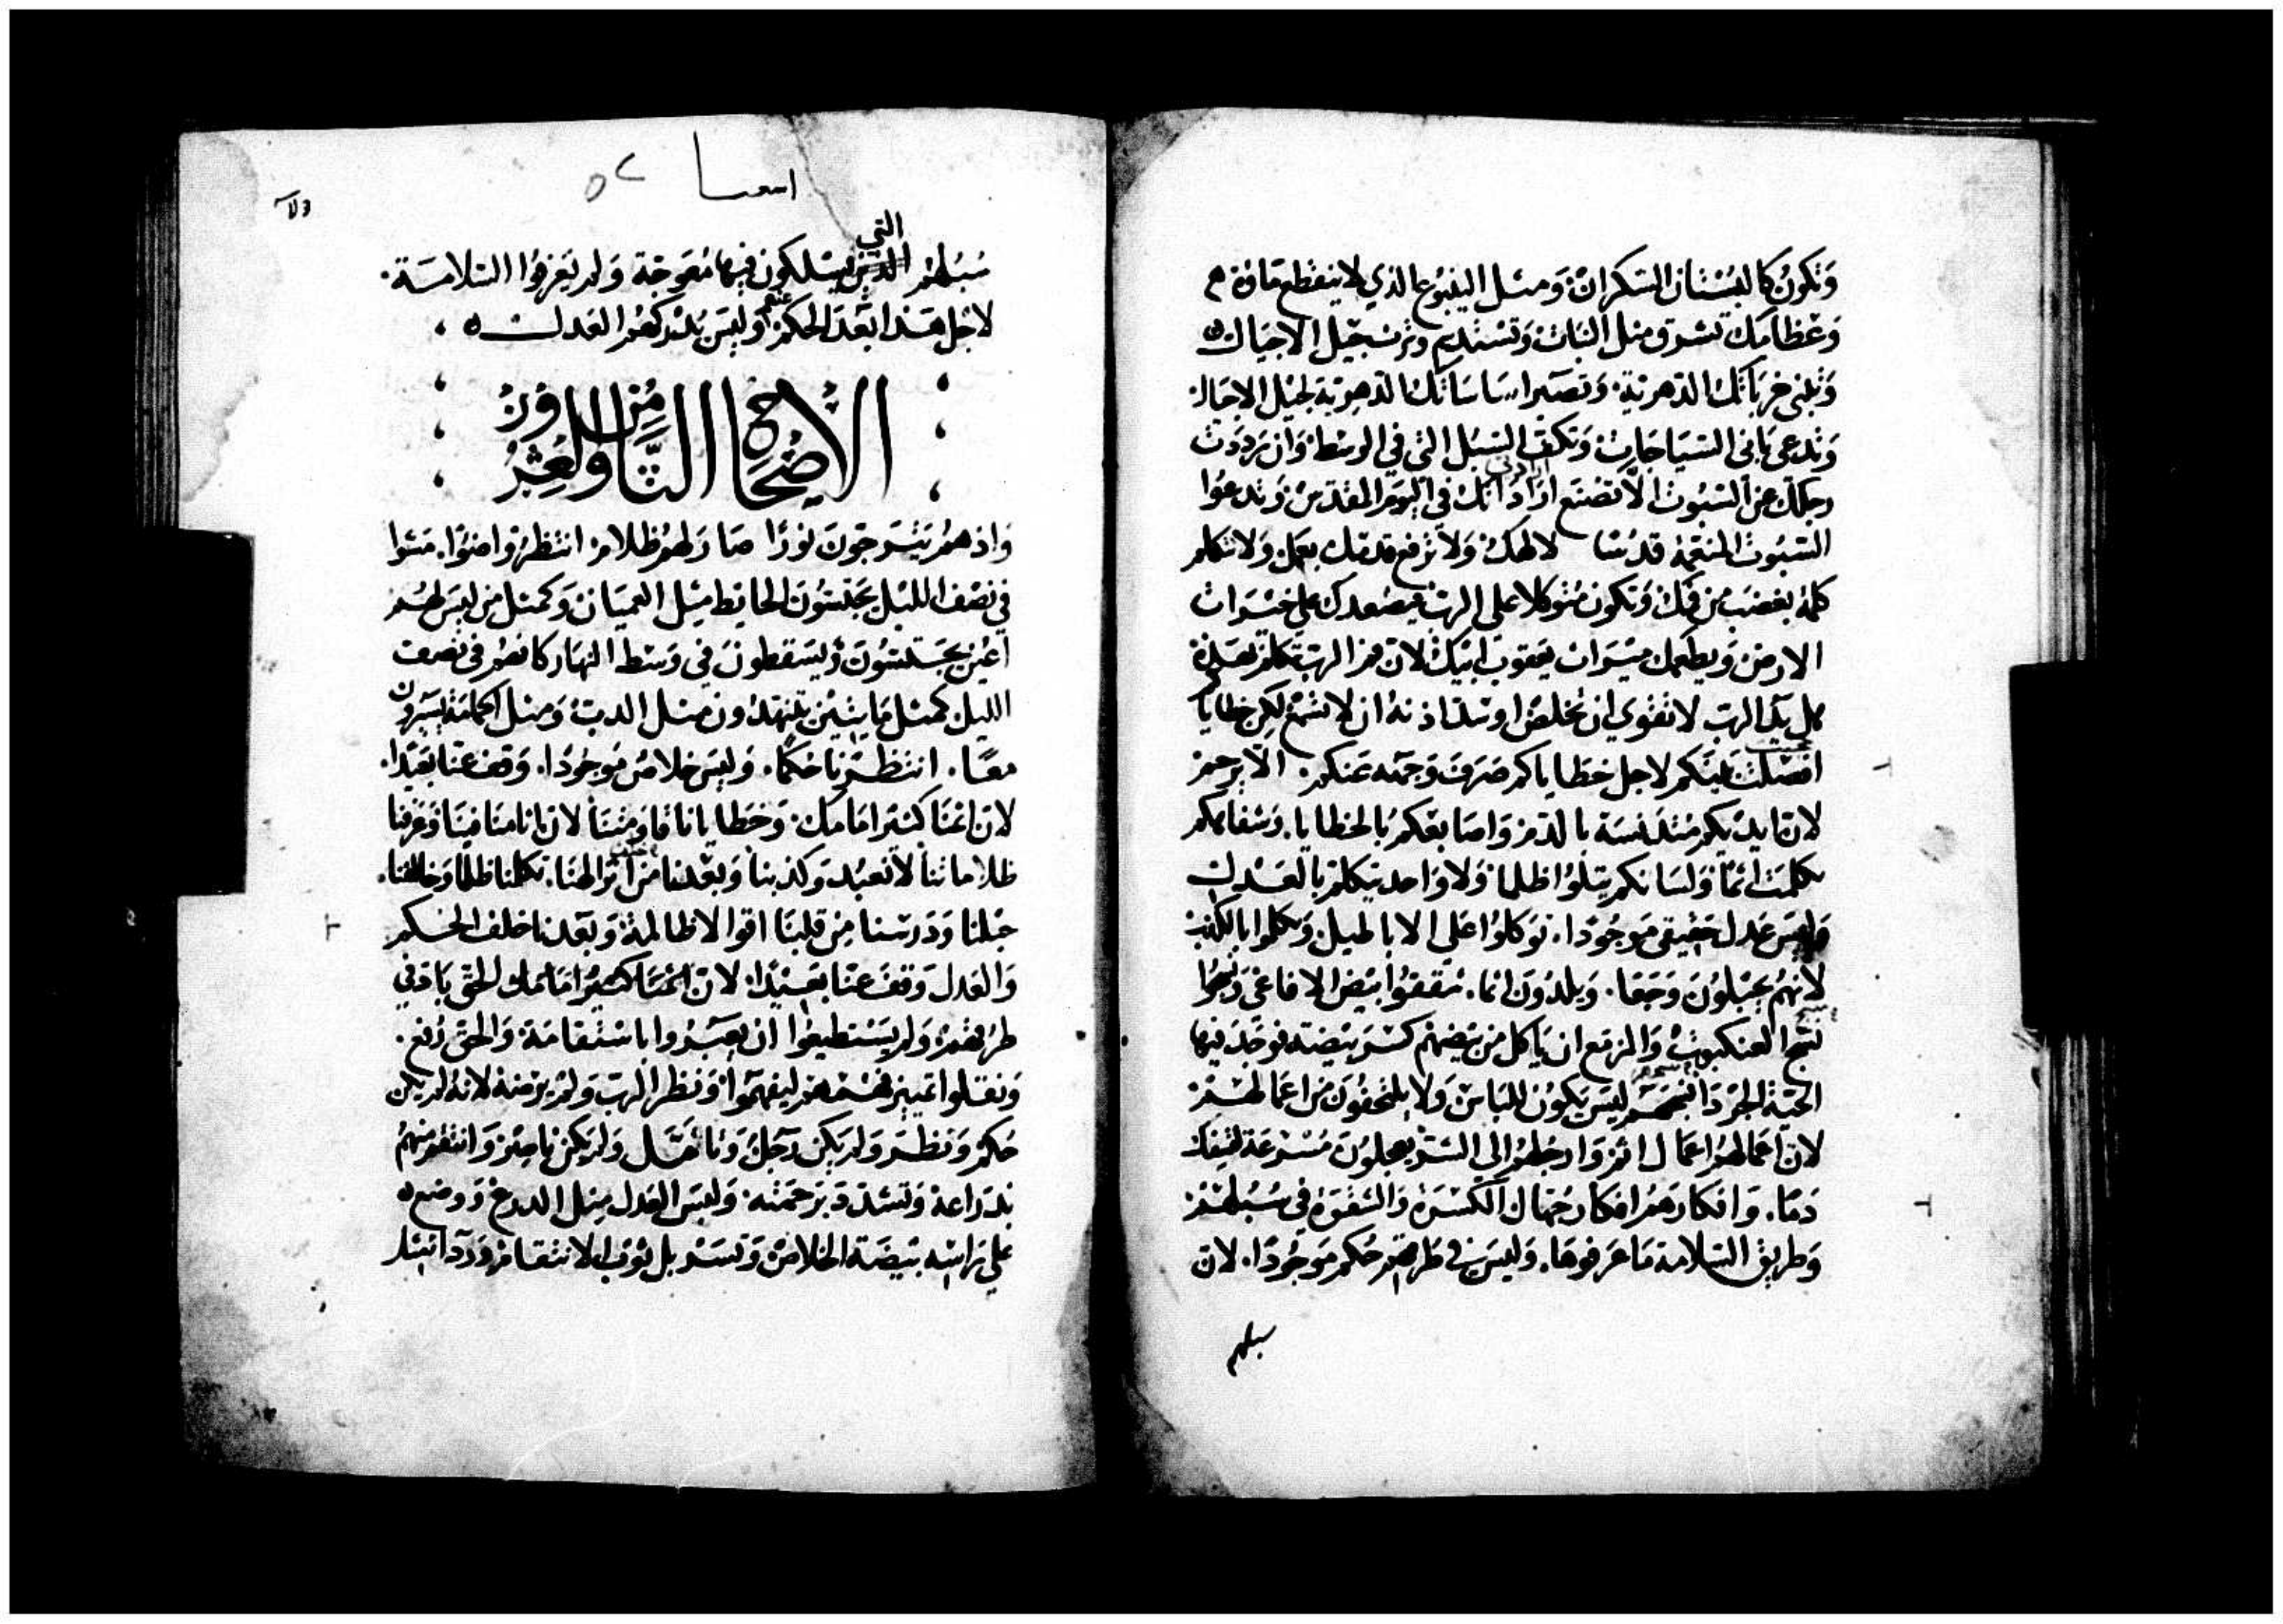 وَتكونُ كالبُسْتان السَكران وَمثل الينبُوع الذي لا ينقطع مَاؤهُ
وَعظامك تشرق مثل النبات وَتسْتديم وترث جيل الاجيال
وَتبنى خرباتك الدهرية وَتصير اساساتك الدهرية لجيل الاجيال
وَتدعى بَانى السيَاجات وَتكف السبل التى في الوسط وَان رددت
رجلك عن السُبوت الا تصْنع اراداتك في اليوم المقدس وَتدعوا
السُبوت المنعمة قدسًا لالهك وَلا ترفع قدمك بعمل ولا تتكلم
كلمة بغضب من فمك وَتكون متوكلا على الرب فيصْعدك على خيرات
الارض وَيطعمك ميرَاث يعقوب ابيك لان فم الرب تكلم بهذه
هل يد الرب لا تقوي ان تخلص او تثقل اذنه ان لا تسمع لكن خطاياكم
بينكم لاجل خطاياكم صَرف وَجهه عَنكم الا يرحم
لان ايديكم متدنسَة بالدم وَاصَابعكم بالخطايا وَشفاهكم
تكلمت اثمًا وَلسَانكم يتلوا ظلما وَلا وَاحد يتكلم بالعَدل
وَليسَ عدل حقيقي مَوجُودًا توكلوا على الاباطيل وَتكلموا بالكذب
لانهم يحبلون وَجعا وَيلدُون اثما فقفوا بيض الافاعى
العنكبوت وَالمزمع ان يَاكل من بيضهم كسر بيضته فوجَد فيها
الحيَة ليسَ يكون للباس وَلا يلتحفون من اعمالهم
لان اعمالهم اعمال اثم وَارجلهم الى الشر يعجلون مسْرعة لسفك
دمًا. وَافكارهم افكار جهال الكسرة وَالشقوة في سُبلهم
وَطريق السلامة مَا عرفوهَا. وَليسَ في طرقهم حكم مَوجُودًا. لان
سبلهم
اسعيا ٥٨
سُبلهم التي يسْلكون فيها مُعوجة وَلم يَعرفوا السلامَة
لاجل هَذا بَعُدَ الحكم عنهم وَليسَ يُدركهم العَدل
الاصْحَاح التاسع وَالخمسون من
وَاذ هم يَرجون نورًا صَار لهم ظلام انتظروا ضوًا. مَشوا
في نصْف الليل يجسّون الحَائط مثل العميَان وَكمثل من ليسَ لهم
اعين يجسّون وَيسقطون في وَسط النهار كانهم في نصف
الليل كمثل مَايتين يتنهدون مثل الدب وَمثل الحمامة يسيرون
معًا. انتظرنا حكمًا. وَليسَ خلاص مَوجُودًا. وَقف عنا بعَيدًا.
لان اثمنا كثير امامك وَخطايانا قاومتنا لان اثامنا فينا وَعرفنا
ظلاماتنا لا نعبُد وكذبنا وَبعدنا من الهنا. تكلمنا ظلمًا وَخالفنا.
حبلنا وَدَرسْنا من قلبنا اقوالا ظالمة وَبعدنا خلف الحكم
وَالعَدل وَقفَ عنا بعَيدًا لان اثمنا كثير امامك الحق بَاد في
طرقهم وَلم يسْتطيعوا ان يعبروا باسْتقامَة وَالحق رُفع.
وَنقلوا تمييز فهْمهم ليفهموا وَنظر الرب وَلم يرضه لانهُ لم يكن
حَكم وَنظر وَلم يكن رَجل وَتامّل وَلم يكن ناصر وَانتقم منهم
بذراعه وَتشدد برحمته وَلبسَ العَدل مثل الدرع وَوضع
على رَاسه بيضَة الخلاص وَتسربل ثوب الانتقام وَردا